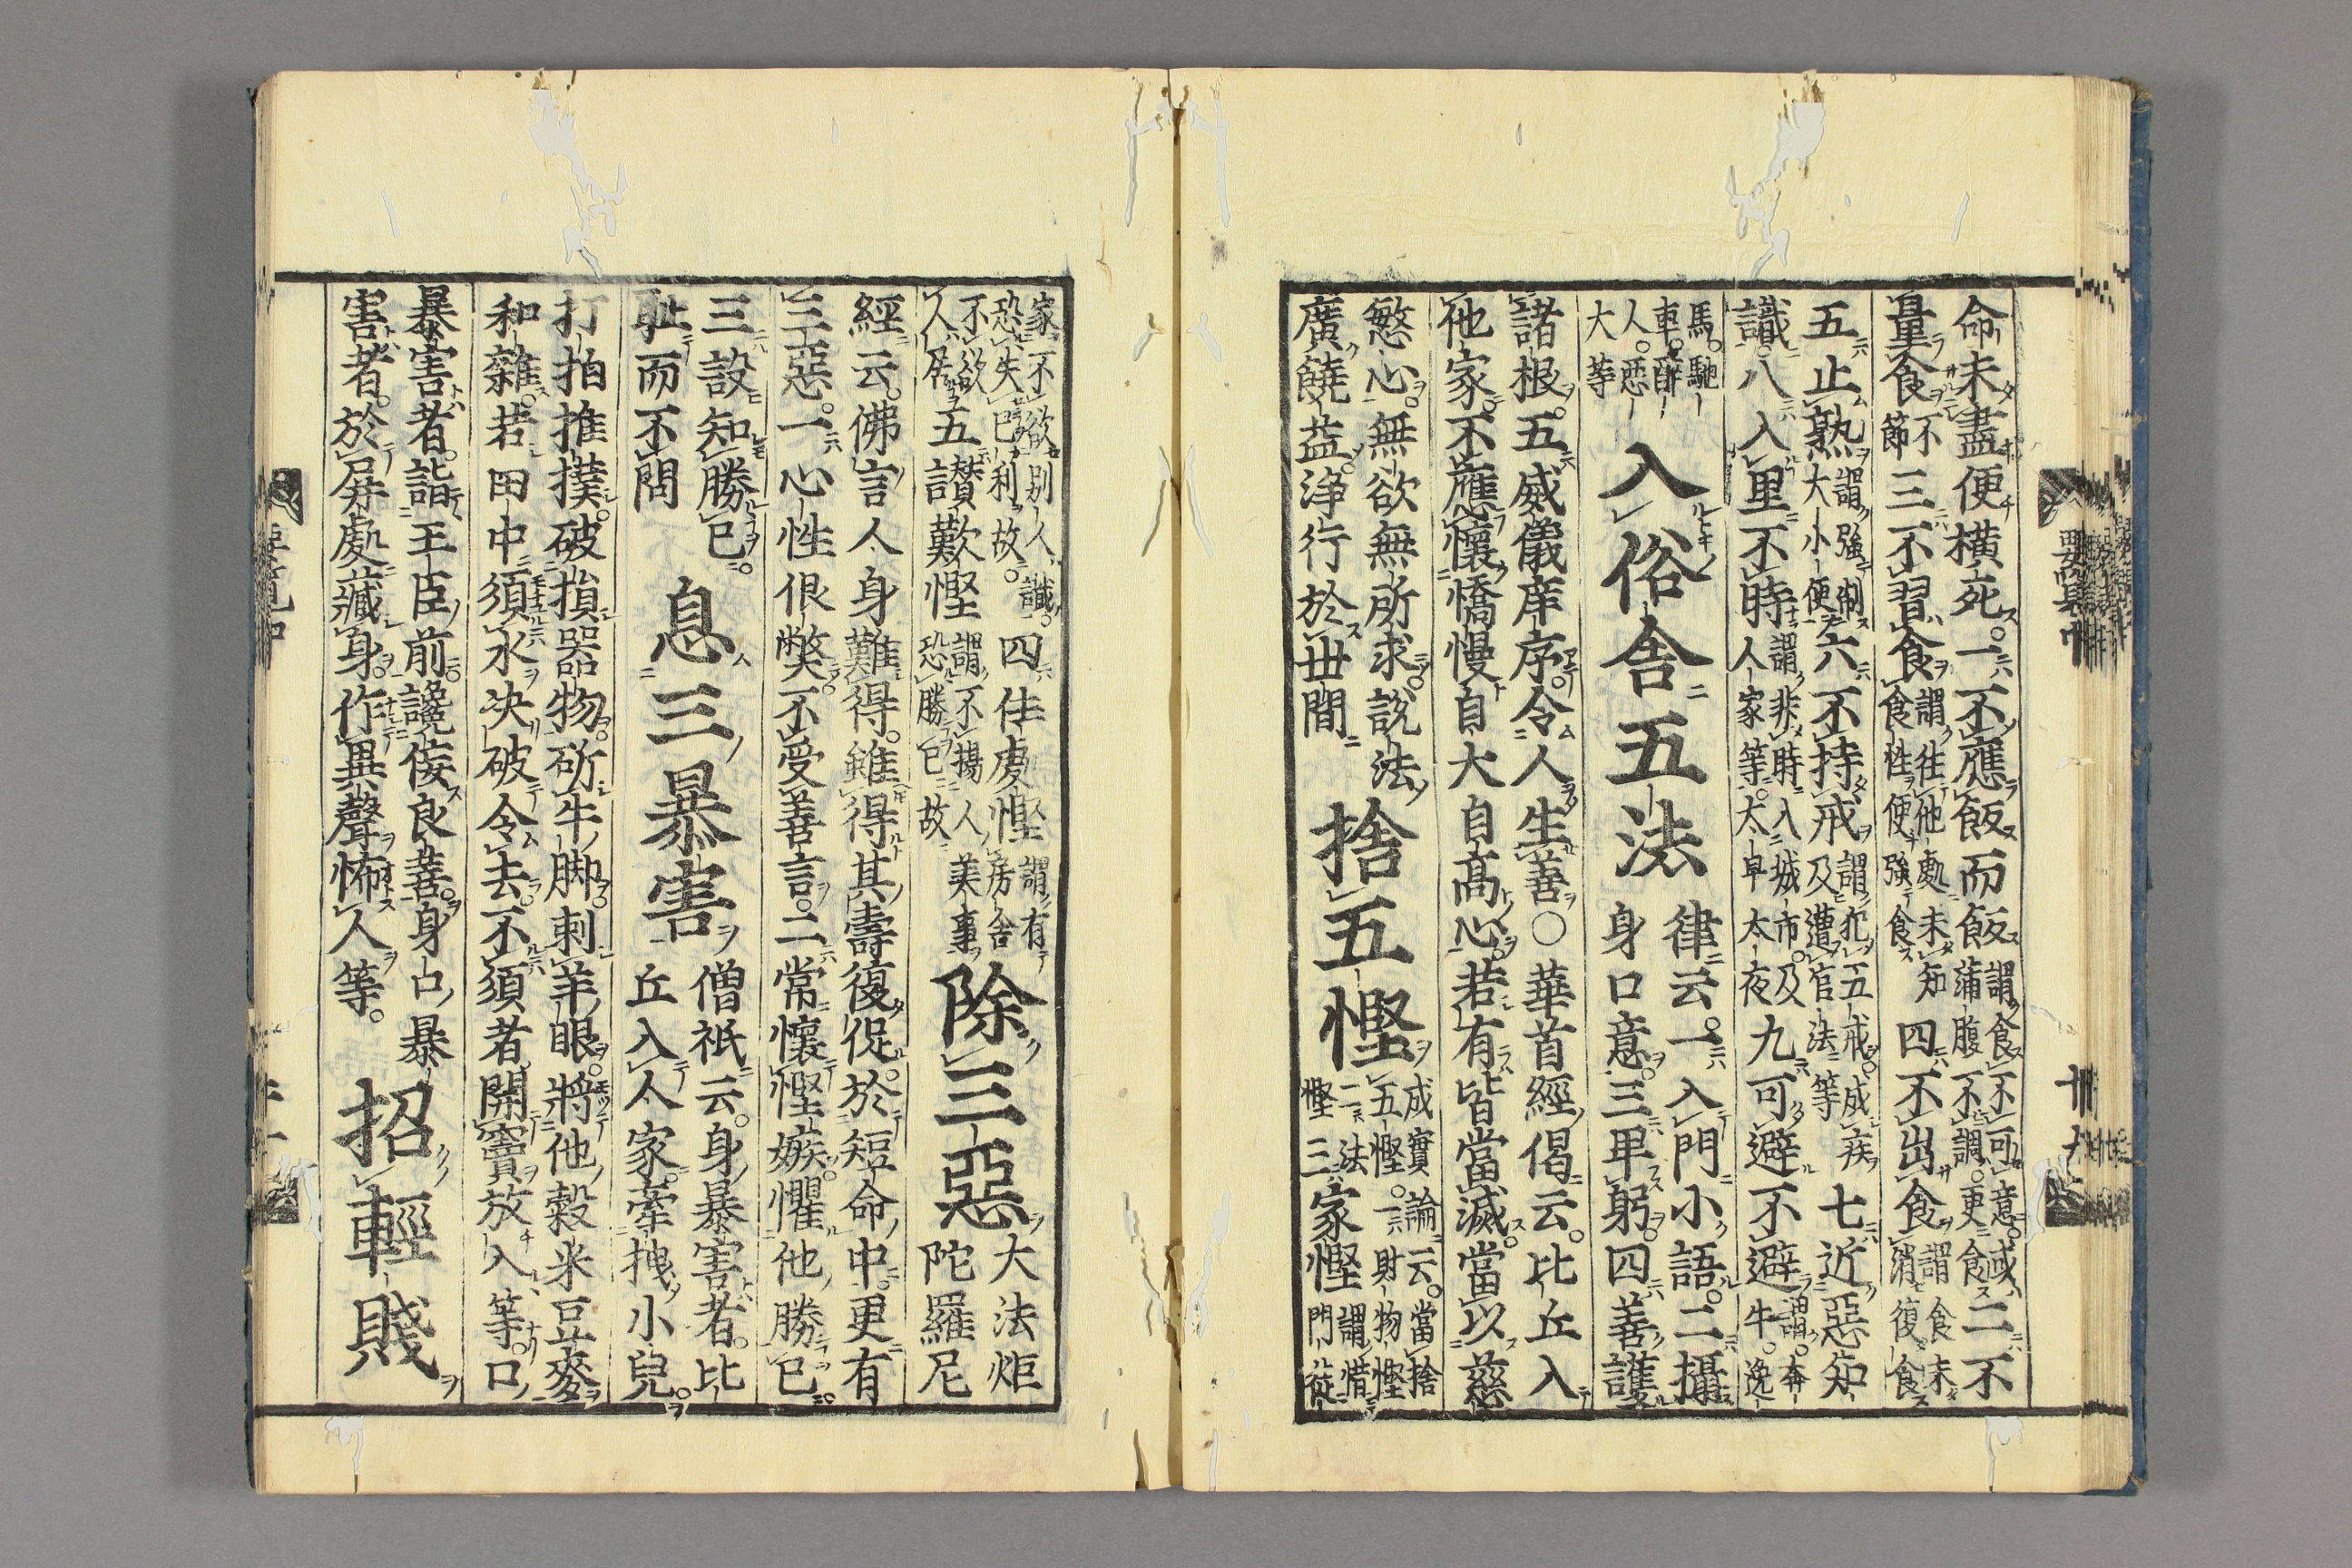 命未盡便橫死。一不應飯而飯謂食不可意。或蒲腹不調。更食二不
量食不節三不習食謂往他處未知食性便強食四不出食謂食未消復食
五止熟謂強制大小便六不持戒謂犯五戒。成疾及遭官法等七近惡知
識。八入里不時謂非時入城市。及人家等。太早太夜九可避不避謂。奔牛。逸
馬。馳車。醉人。惡大等
入俗舍五法
律云。一入門小語。二攝
身口意。三卑躬。四善護
諸根。五威儀庠序。令人生善〇華首經偈云。比丘入
他家。不應懷憍慢自大自高心。若有皆當滅。當以慈
愍心。無欲無所求。說法
廣饒益。淨行於世間
捨五慳
成實論云。當捨五慳。一財物慳二法慳三家慳謂惜門徒
家不欲別人識。恐失己利故。四住處慳謂有房舍不欲人居五讃歎慳謂不揚人美事恐勝己故
除三惡
大法炬
陀羅尼
經云。佛言人身難得。雖得其壽復促。於短命中。更有
三惡。一心性佷弊。不受善言。二常懷慳嫉。懼他勝已。
三設知勝已。
耻而不問
息三暴害
僧祇云。身暴害者。比
丘入人家。牽拽小兒。
打拍推撲。破損器物。斫牛脚。刺羊眼。將他穀米豆麥
和雜。若田中須水決破令去。不須者。開竇放入等。口
暴害者。詣王臣前。讒佞良善。身口暴
害者。於屏處藏身。作異聲怖人等。
招輕賤